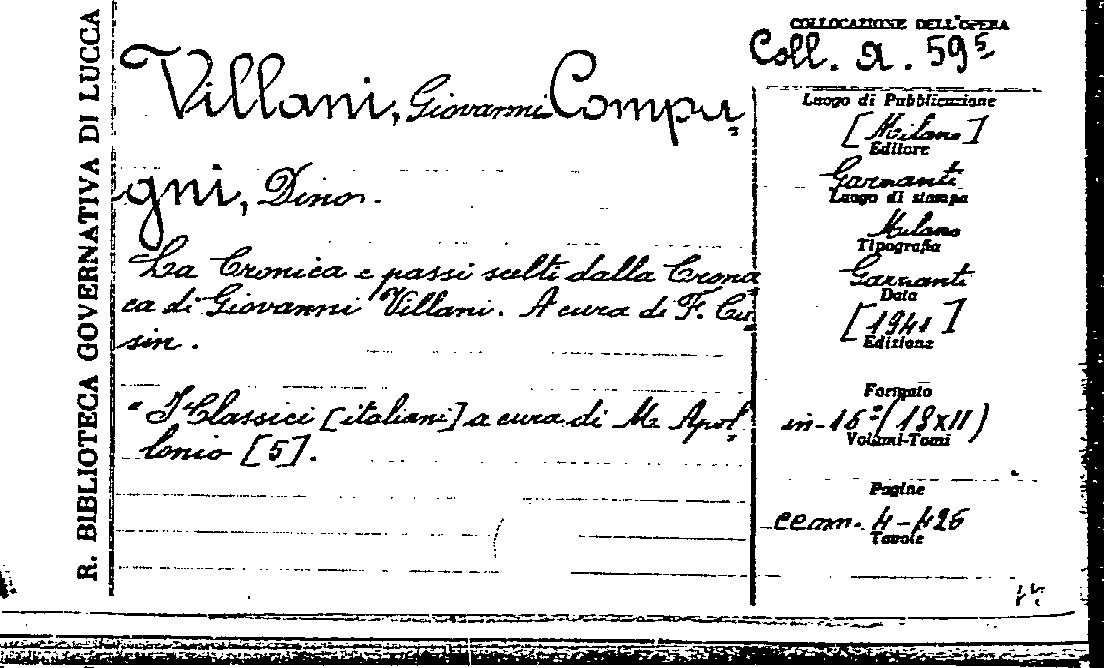 R. BIBLIOTECA GOVERNATIVA DI LUCCA
Villani, Giovanni Compa=
gni, Dino.
La Cronica e passi scelti dalla Crona
ca di Giovanni Villani. A cura di F. Cu=
sin.
"I Classici [italiani] a cura di M. Apol=
lonio [5].
COLLOCAZIONE DELL'OPERA
Coll. A. 59⁵
Luogo di Pubblicazione
[Milano]
Editore
Garzanti
Luogo di stampa
Milano
Tipografia
Garzanti
Data
[1941]
Edizione
Formato
in-16º (18x11)
Volumi-Tomi
Pagine
4-426
Tavole